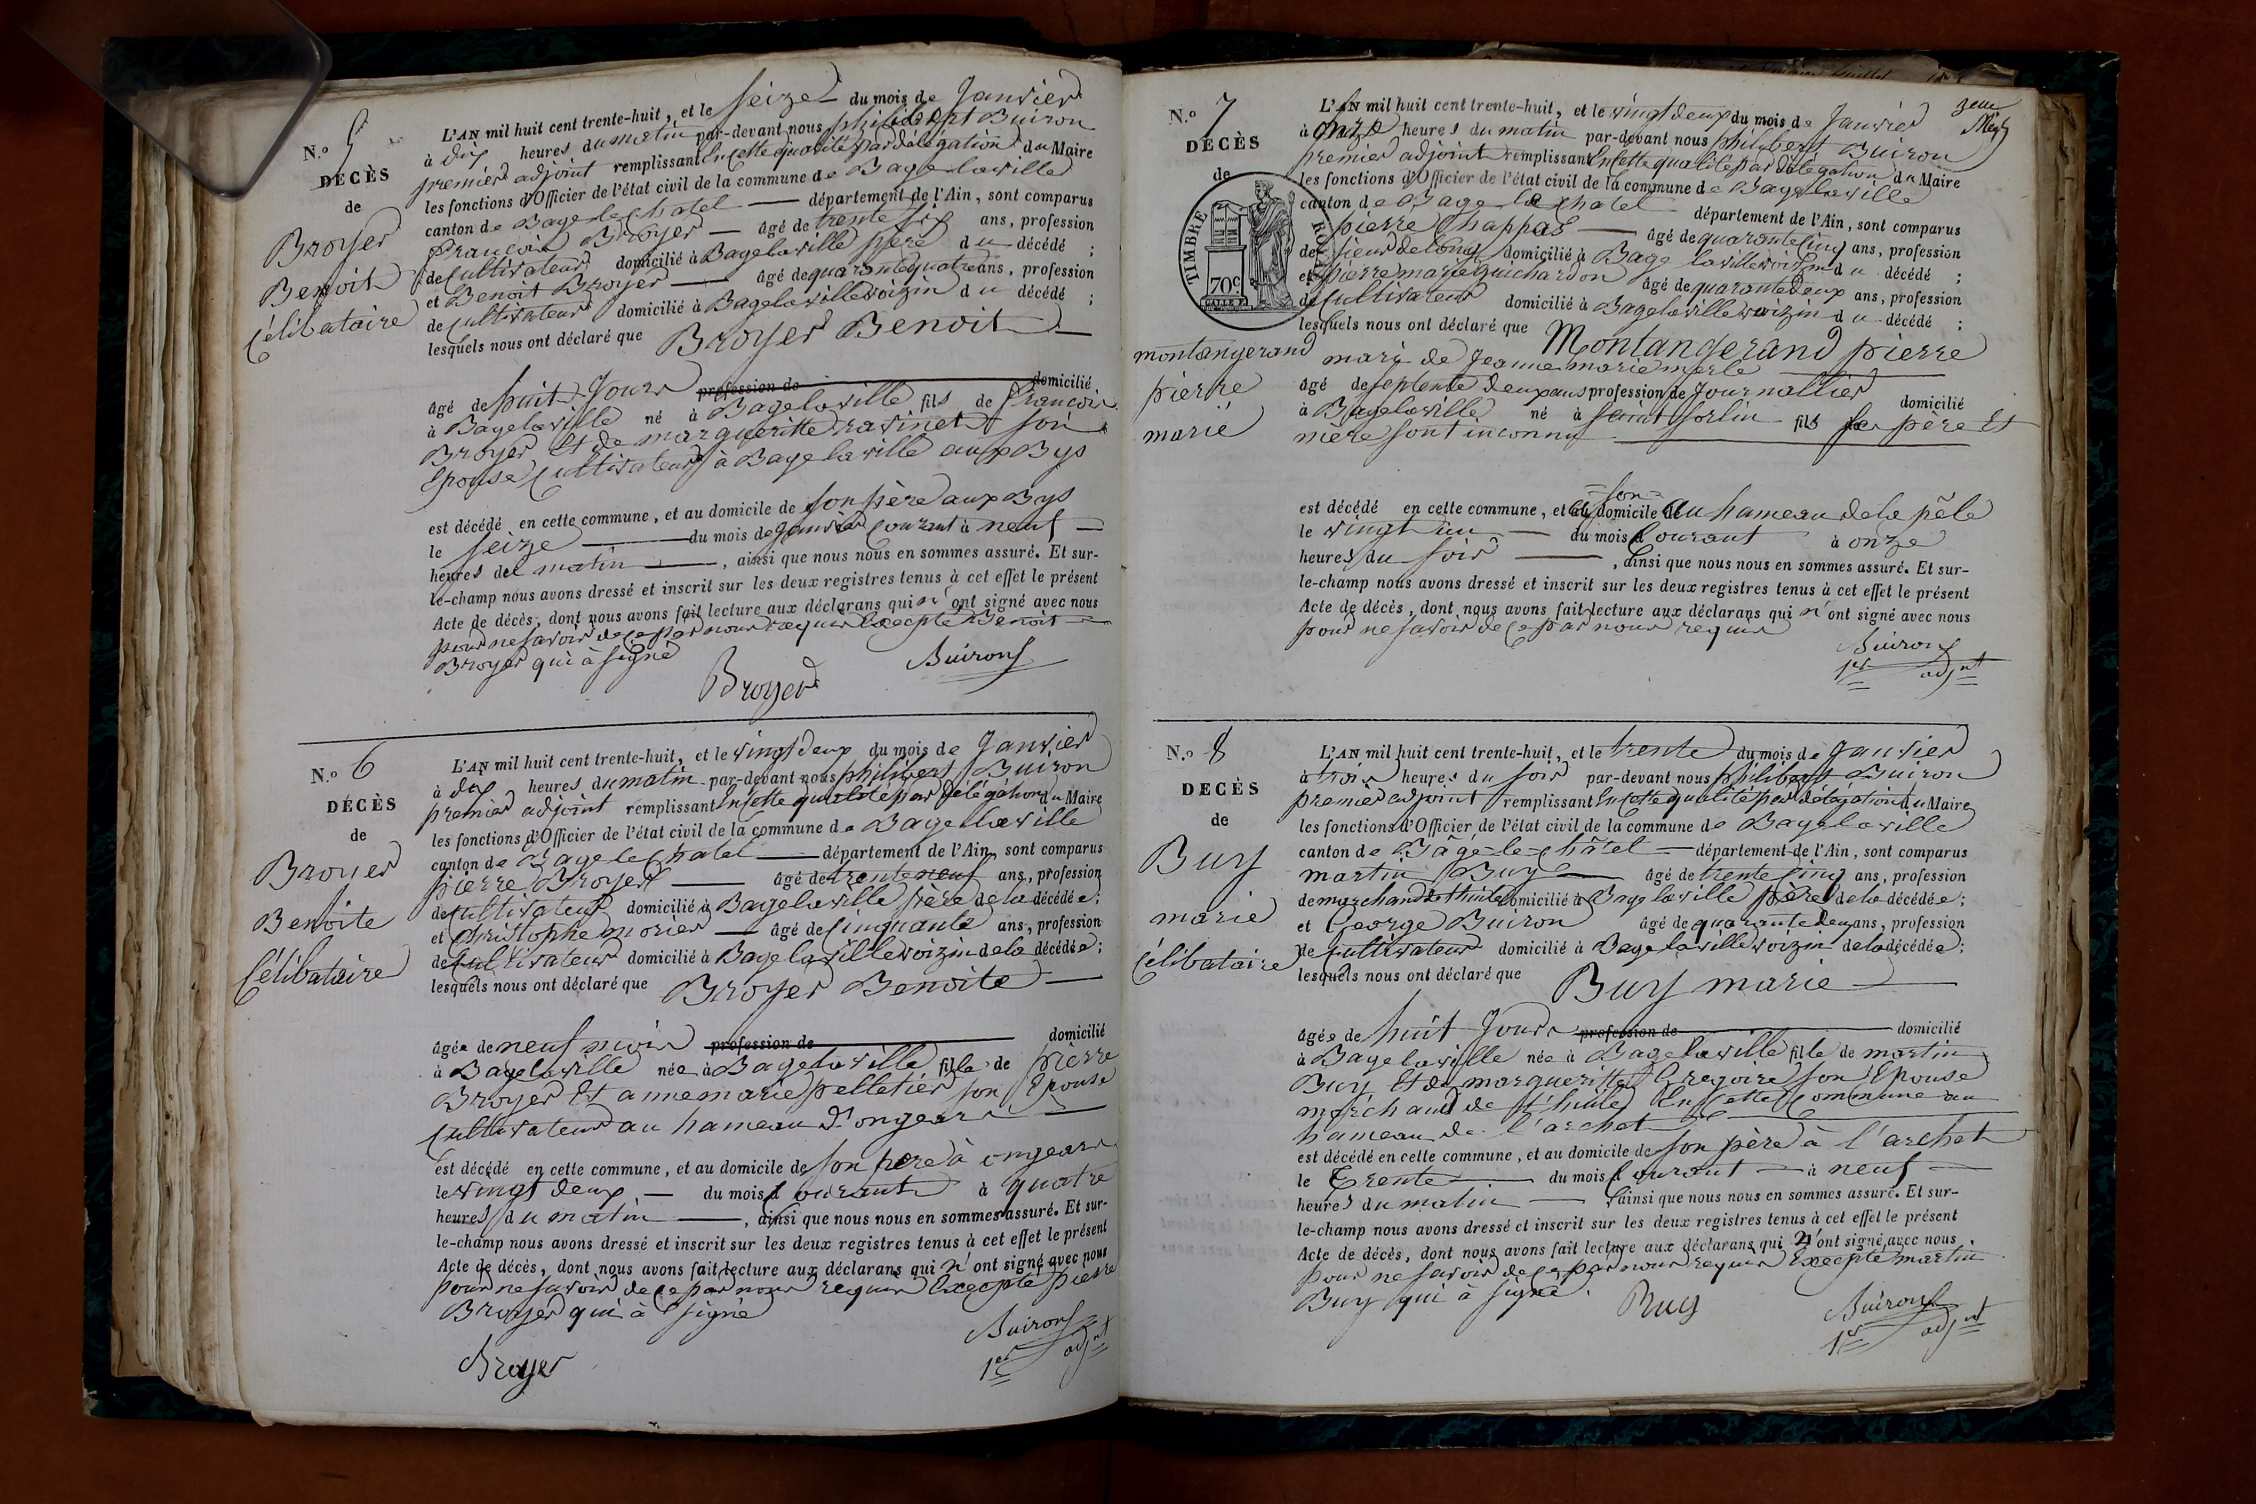 N.° 5
DÉCÈS
de
Broyer
Benoit
Célibataire
L'AN mil huit cent trente-huit, et le seize du mois de Janvier
à dix heures du matin par-devant nous philibert Buiron
premier adjoint remplissant En cette qualité par délégation du Maire
les fonctions d'Officier de l'état civil de la commune de Bagelaville
canton de Bage le chatel département de l'Ain, sont comparus
François Broyer âgé de trente six ans, profession
de Cultivateur domicilié à Bagelaville père du décédé ;
et Benoit Broyer âgé de quarante quatre ans, profession
de Cultivateur domicilié à Bagelaville voizin du décédé ;
lesquels nous ont déclaré que Broyer Benoit
âgé de huit Jours profession de domicilié
à Bagelaville né à Bagelaville fils de François
Broyer Et de margueritte ravinet son
Epouse Cultivateurs à Bagelaville aux Bys
est décédé en cette commune, et au domicile de son père aux Bys
le seize du mois de Janvier Courant à neuf
heures du matin , ainsi que nous nous en sommes assuré. Et sur-
le-champ nous avons dressé et inscrit sur les deux registres tenus à cet effet le présent
Acte de décès, dont nous avons fait lecture aux déclarans qui n'ont signé avec nous
pour ne savoir de ce par nous requis Excepté Benoit
Broyer qui à signé
Broyer Buiron
N.° 6
DÉCÈS
de
Broyer
Benoite
Célibataire
L'AN mil huit cent trente-huit, et le vingt deux du mois de Janvier
à dix heures du matin par-devant nous philibert Buiron
premier adjoint remplissant En cette qualité par délégation du Maire
les fonctions d'Officier de l'état civil de la commune de Bagelaville
canton de Bage le Chatel département de l'Ain, sont comparus
pierre Broyer âgé de trente neuf ans, profession
de Cultivateur domicilié à Bagelaville père de la décédée ;
et Christophe morier âgé de Cinquante ans, profession
de Cultivateur domicilié à Bagelaville voizin de la décédée ;
lesquels nous ont déclaré que Broyer Benoite
âgée de neuf mois profession de domicilié
à Bagelaville née à Bagelaville fille de pierre
Broyer Et annemarie pelletier son Epouse
Cultivateurs au hameau d'ongears
est décédé en cette commune, et au domicile de son père à ongears
le vingt deux du mois Courant à quatre
heures du matin , ainsi que nous nous en sommes assuré. Et sur-
le-champ nous avons dressé et inscrit sur les deux registres tenus à cet effet le présent
Acte de décès, dont nous avons fait lecture aux déclarans qui n'ont signé avec nous
pour ne savoir de ce par nous requis Excepté pierre
Broyer qui à signé
Broyer Buiron
1er adjnt
3eme
N.° 7
DÉCÈS
de
TIMBRE ROYAL
70c
montangerand
pierre
marié
L'AN mil huit cent trente-huit, et le vingt deux du mois de Janvier
à onze heures du matin par-devant nous philibert Buiron
premier adjoint remplissant En cette qualité par délégation du Maire
les fonctions d'Officier de l'état civil de la commune de Bagelaville
canton de Bage le chatel département de l'Ain, sont comparus
pierre Chappas âgé de quarante cinq ans, profession
de sieur de long domicilié à Bage laville voizin du décédé ;
et pierre marie guichardon âgé de quarante deux ans, profession
de Cultivateur domicilié à Bagelaville voizin du décédé ;
lesquels nous ont déclaré que Montangerand pierre
mari de Jeanne marie merle
âgé de septente deux ans profession de Journallier domicilié
à Bagelaville né à saint sorlin fils ses père Et
mère sont inconnus
est décédé en cette commune, et à son domicile au hameau de la pêle
le vingt un du mois Courant à onze
heures du soir , ainsi que nous nous en sommes assuré. Et sur-
le-champ nous avons dressé et inscrit sur les deux registres tenus à cet effet le présent
Acte de décès, dont nous avons fait lecture aux déclarans qui n'ont signé avec nous
pour ne savoir de ce par nous requis
Buiron
1er adjnt
N.° 8
DÉCÈS
de
Buy
marie
Célibataire
L'AN mil huit cent trente-huit, et le trente du mois de Janvier
à trois heures du soir par-devant nous philibert Buiron
premier adjoint remplissant En cette qualité par délégation du Maire
les fonctions d'Officier de l'état civil de la commune de Bagelaville
canton de Bâgé-le-châtel département de l'Ain, sont comparus
martin Buy âgé de trente cinq ans, profession
de marchand de thuile domicilié à Bagelaville père de la décédée ;
et George Buiron âgé de quarante deux ans, profession
de Cultivateur domicilié à Bagelaville voizin de la décédée ;
lesquels nous ont déclaré que Buy marie
âgée de huit Jours profession de domicilié
à Bagelaville née à Bagelaville fille de martin
Buy Et de margueritte Gregoire son Epouse
marchand de thuile En cette Commune au
hameau de l'archet
est décédé en cette commune, et au domicile de son père à l'archet
le Trente du mois Courant à neuf
heures du matin ainsi que nous nous en sommes assuré. Et sur-
le-champ nous avons dressé et inscrit sur les deux registres tenus à cet effet le présent
Acte de décès, dont nous avons fait lecture aux déclarans qui n'ont signé avec nous
pour ne savoir de ce par nous requis Excepté martin
Buy qui à signé.
Buy Buiron
1er adjnt